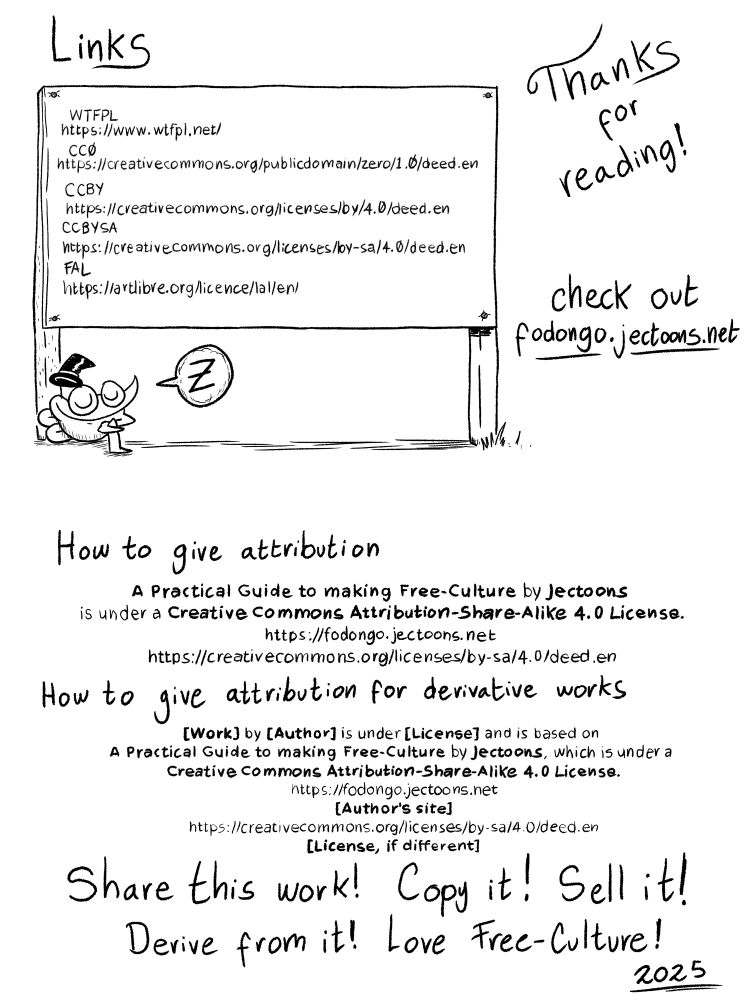 Links
WTFPL
https://www.wtfpl.net/
CC0
https://creativecommons.org/publicdomain/zero/1.0/deed.en
CCBY
https://creativecommons.org/licenses/by/4.0/deed.en
CCBYSA
https://creativecommons.org/licenses/by-sa/4.0/deed.en
FAL
https://artlibre.org/licence/lal/en/
Thanks
for
reading!
check out
fodongo.jectoons.net
Z
How to give attribution
A Practical Guide to making Free-Culture by Jectoons
is under a Creative Commons Attribution-Share-Alike 4.0 License.
https://fodongo.jectoons.net
https://creativecommons.org/licenses/by-sa/4.0/deed.en
How to give attribution for derivative works
[Work] by [Author] is under [License] and is based on
A Practical Guide to making Free-Culture by Jectoons, which is under a
Creative Commons Attribution-Share-Alike 4.0 License.
https://fodongo.jectoons.net
[Author's site]
https://creativecommons.org/licenses/by-sa/4.0/deed.en
[License, if different]
Share this work! Copy it! Sell it!
Derive from it! Love Free-Culture!
2025